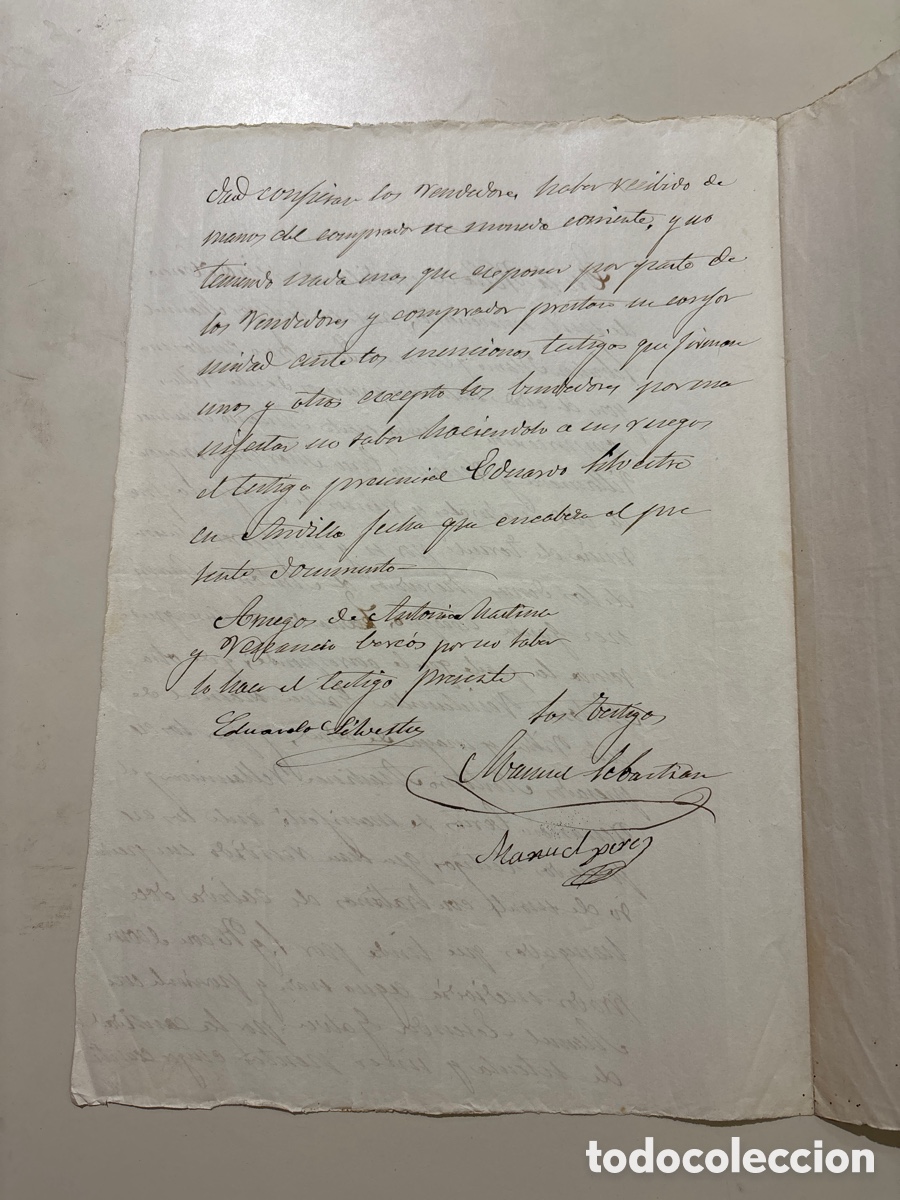 dad confiesan los Vendedores haber recibido de
manos del comprador en moneda corriente, y no
teniendo nada mas que exponer por parte de
los Vendedores y comprador prestan su confor
midad ante los mencionos testigos que firman
unos y otros excepto los bendedores por ma
nifestar no saber haciendolo a sus ruegos
el testigo presencial Eduardo Silvestre
en Andilla fecha que encabeza el pre
sente documento
Aruegos de Antonia Martina
y Venancio bercós por no saber
lo hace el testigo presente
Eduardo Silvestre
Los Testigos
Manuel Sebastian
Manuel perez
todocoleccion